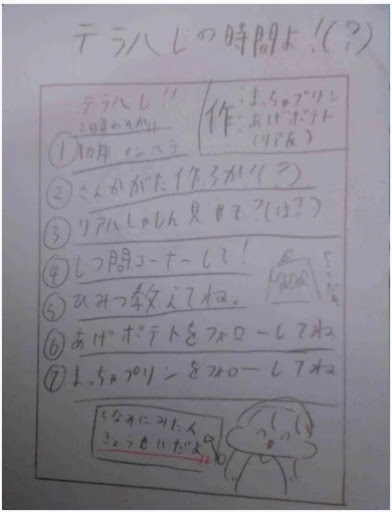 テラハしの時間よ!(?)
テラハし!!
作:まっちゃプリン
あげポテト
(リア友)
① 1カ月 メンヘラ
② さんかがた作ろか!(?)
③ リアルしゃしん見せて?(は?)
④ しつ問コーナーして!
⑤ ひみつ教えてね。
⑥ あげポテトをフォローしてね
⑦ まっちゃプリンをフォローしてね
ちなみにみた人
きょうせいだよ!!